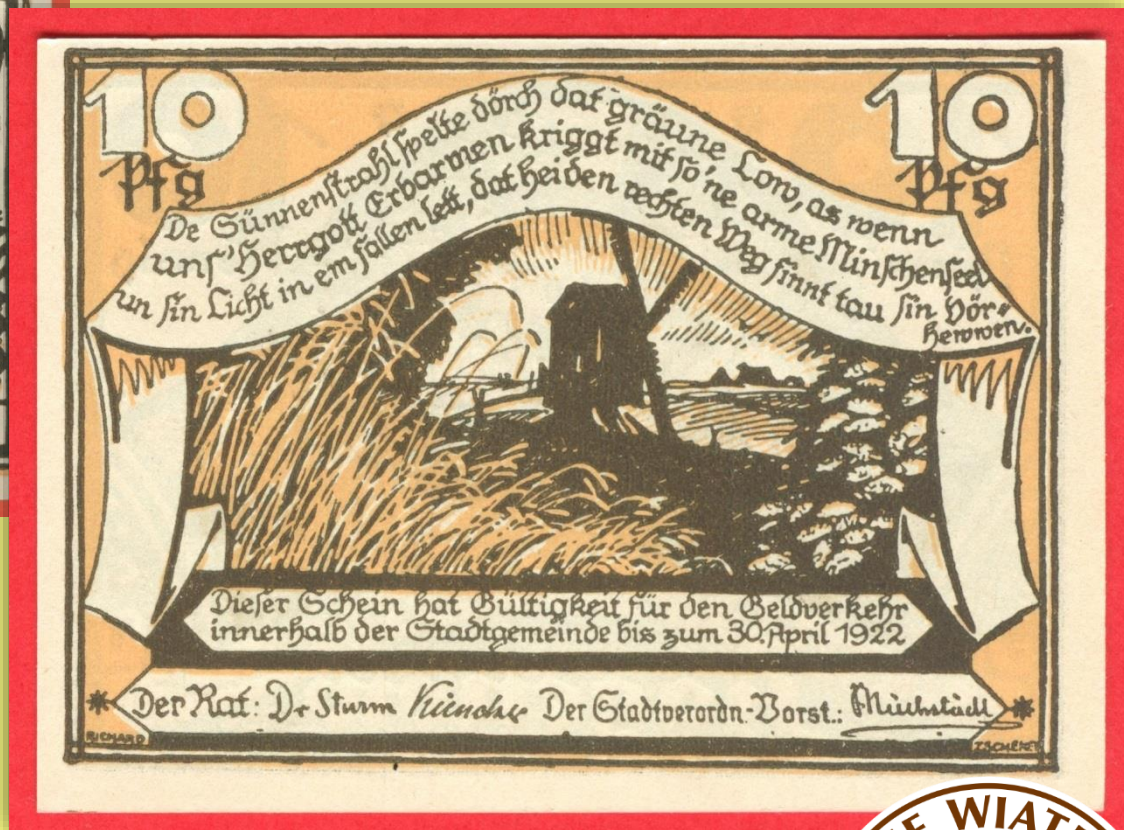 10 10
Pfg Pfg
De Sünnenstrahl spelte dörch dat gräune Low, as wenn
uns' Herrgott Erbarmen kriggt mit so'ne arme Minschenseel
un sin Licht in em fallen lett, dat hei den rechten Weg finnt tau sin Vör-
herwwen.
Dieser Schein hat Gültigkeit für den Geldverkehr
innerhalb der Stadtgemeinde bis zum 30. April 1922
* Der Rat: Dr Sturm Der Stadtverordn.-Vorst.: *
RICHARD
WIAT